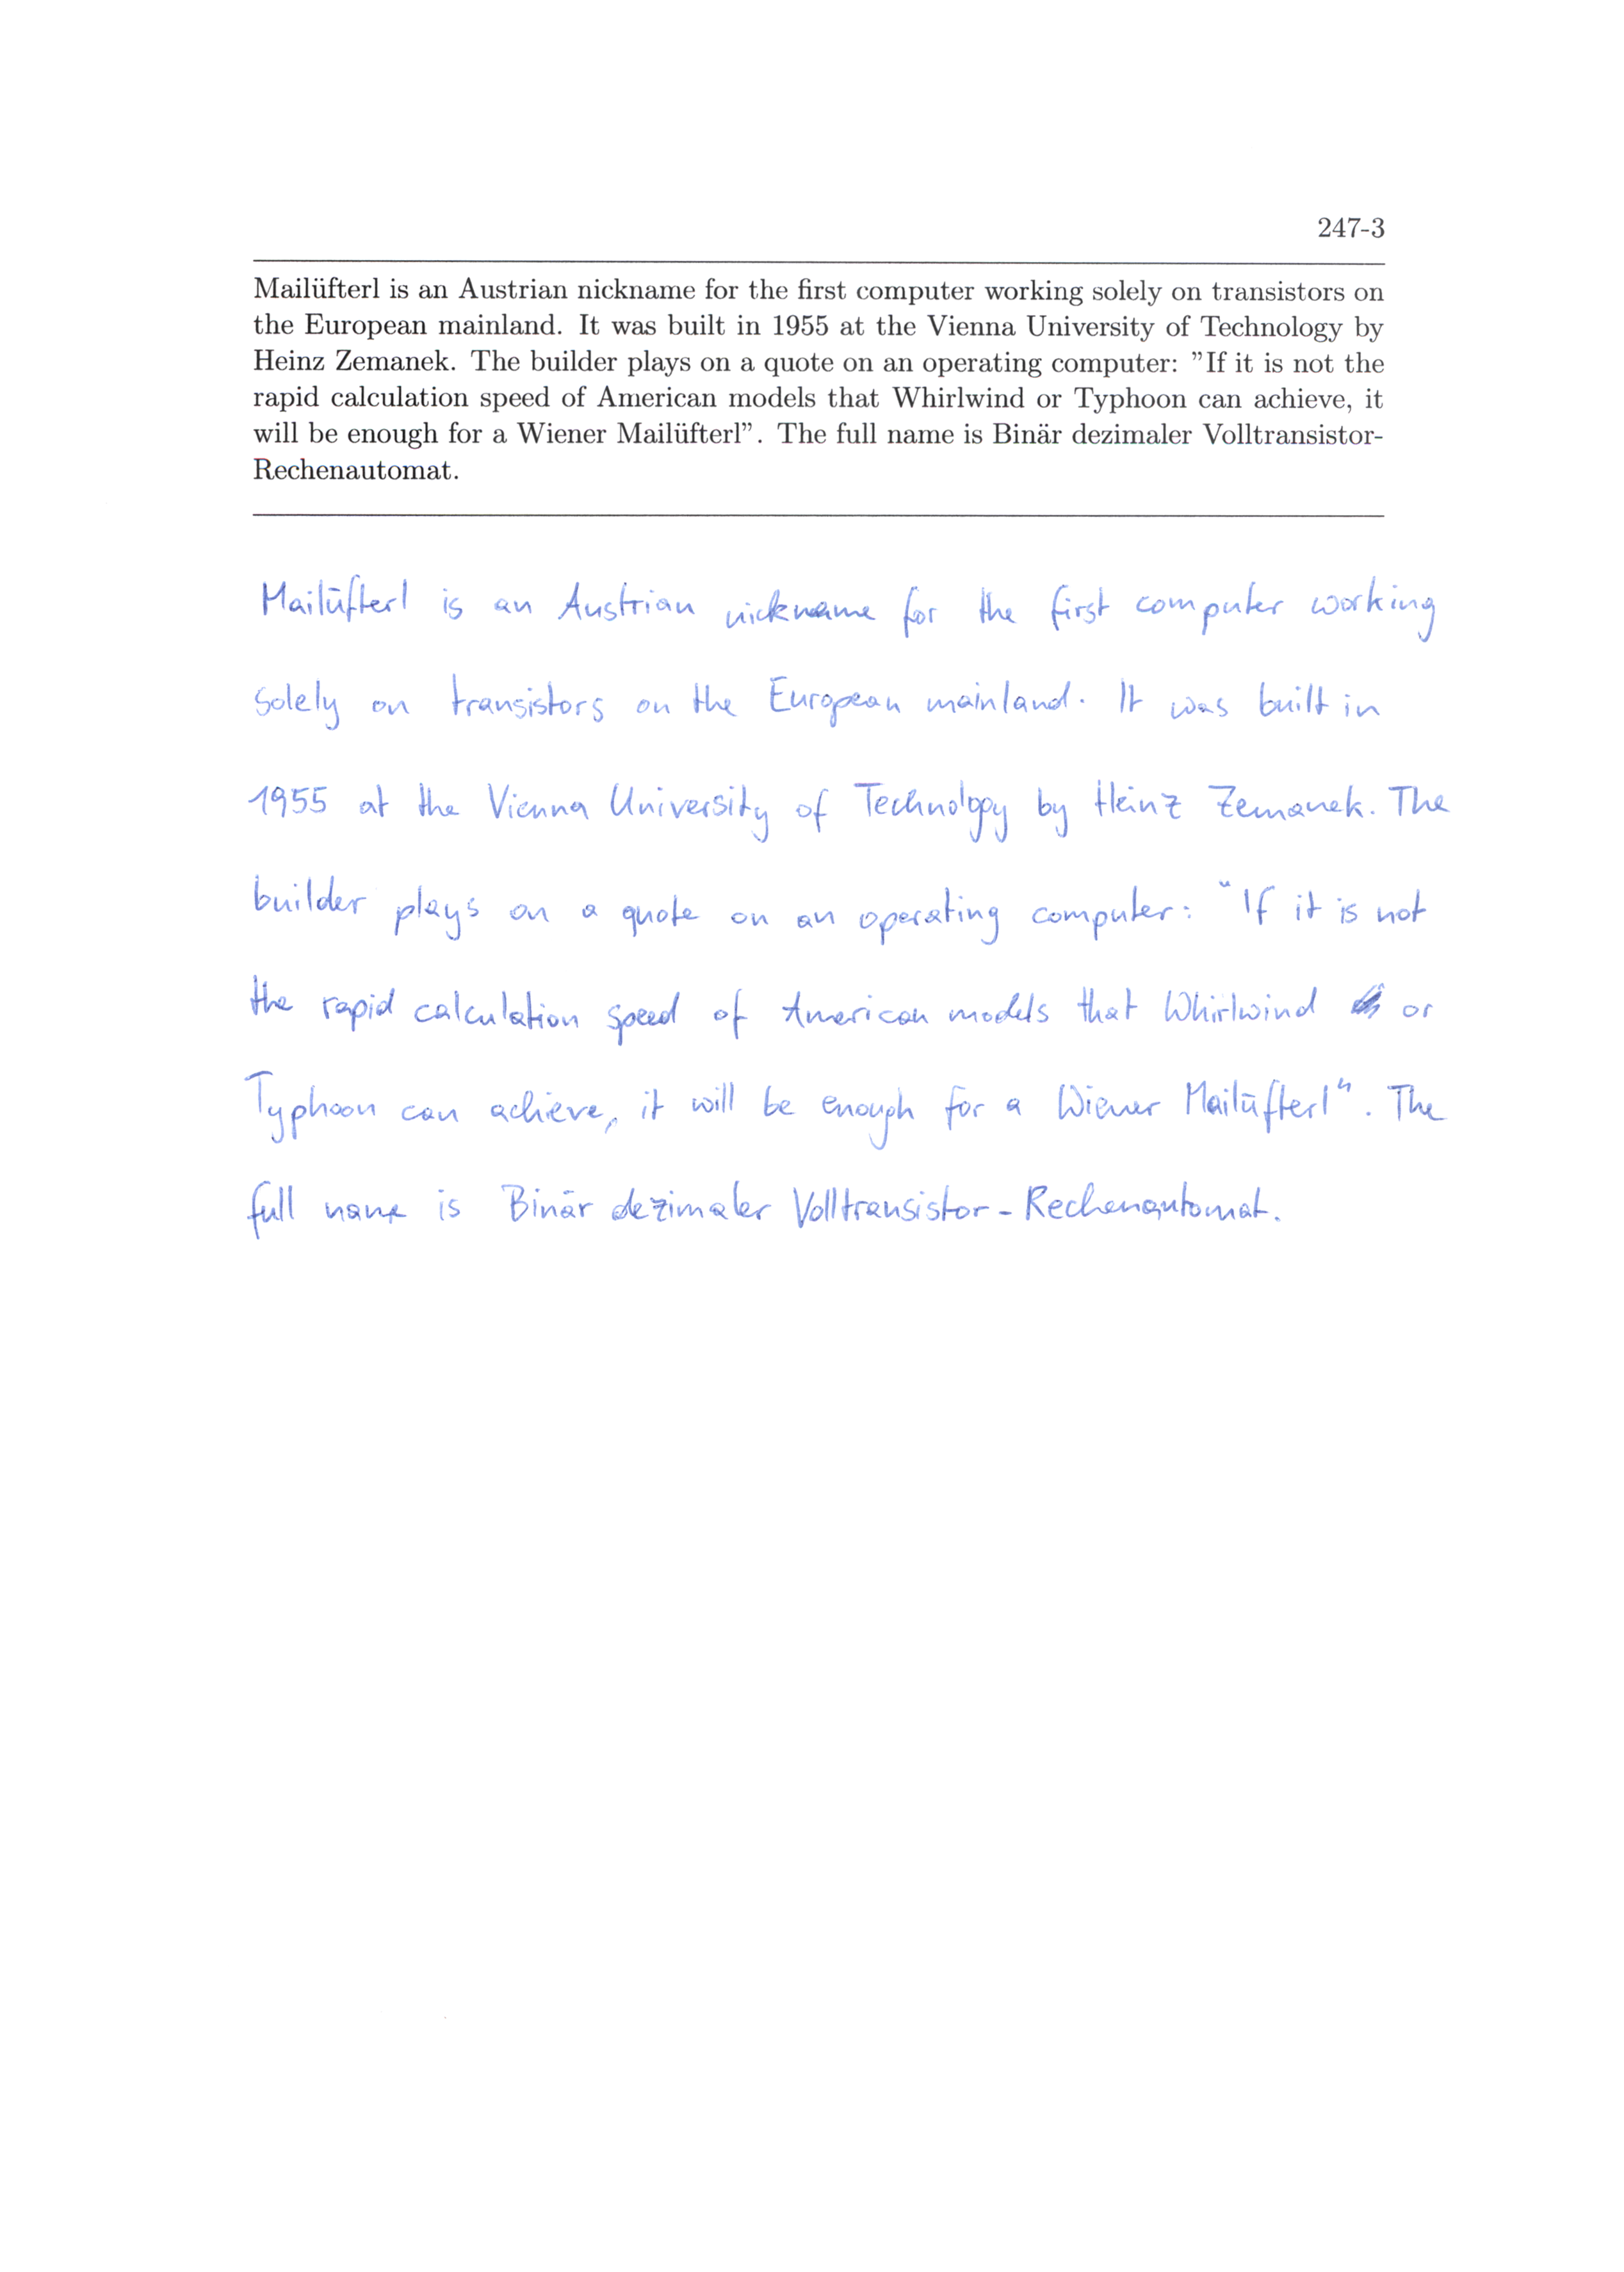 247-3
Mailüfterl is an Austrian nickname for the first computer working solely on transistors on
the European mainland. It was built in 1955 at the Vienna University of Technology by
Heinz Zemanek. The builder plays on a quote on an operating computer: ”If it is not the
rapid calculation speed of American models that Whirlwind or Typhoon can achieve, it
will be enough for a Wiener Mailüfterl”. The full name is Binär dezimaler Volltransistor-
Rechenautomat.
Mailüfterl is an Austrian nickname for the first computer working
solely on transistors on the European mainland. It was built in
1955 at the Vienna University of Technology by Heinz Zemanek. The
builder plays on a quote on an operating computer: "If it is not
the rapid calculation speed of American models that Whirlwind or
Typhoon can achieve, it will be enough for a Wiener Mailüfterl". The
full name is Binär dezimaler Volltransistor-Rechenautomat.